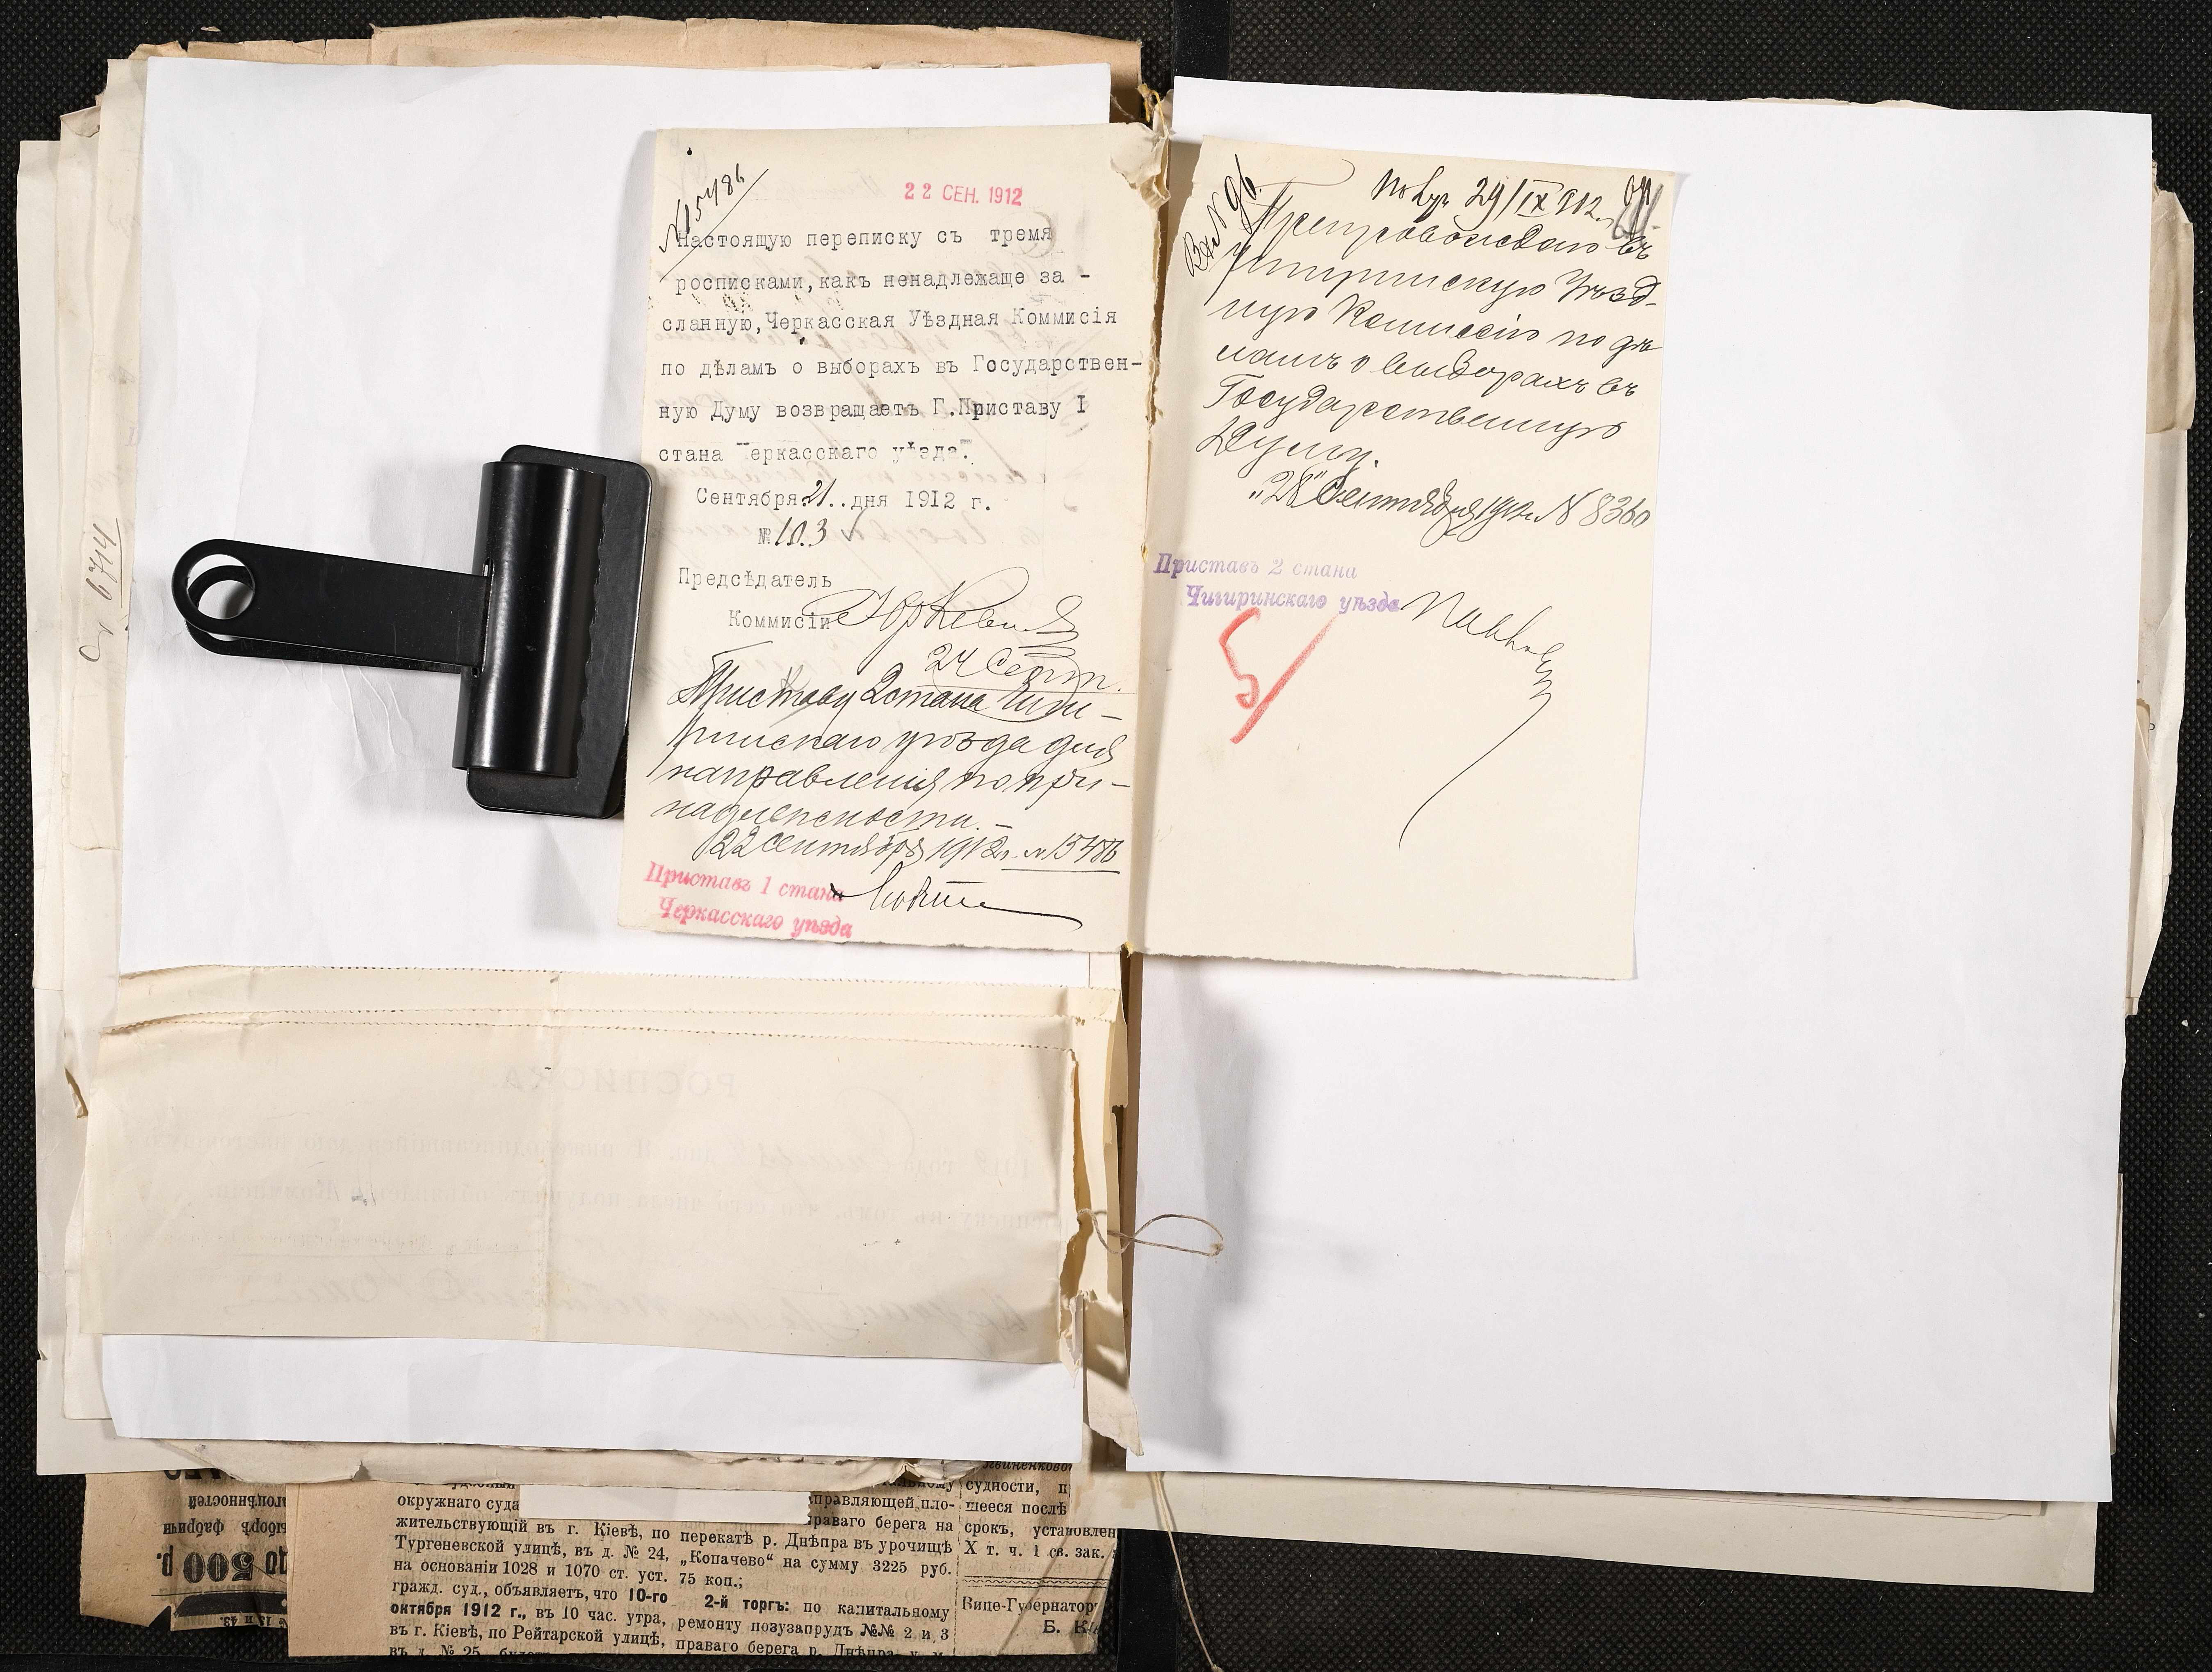 №15486
22 СЕН. 1912
Настоящую переписку съ тремя
росписками, какъ ненадлежаще за -
сланную, Черкасская Уѣздная Коммисія
по дѣламъ о выборахъ въ Государствен-
ную Думу возвращаетъ Г. Приставу I
стана Черкасскаго уѣзда.
Сентября 21.. дня 1912 г.
№ 103
Предсѣдатель
Коммисіи
24 Сент.
Приставу 2 стана Чиги-
ринскаго уѣзда для
направленія по при-
надлежности. -
22 Сентября 1912 г. № 15486
Приставъ 1 стана
Черкасскаго уѣзда
Вх № 96
29/IX 912 г.
Препровождаю въ
Чигиринскую Уѣзд-
ную Комиссію по дѣ
ламъ о выборахъ въ
Государственную
Думу.
"28" Сентября 1912 г. № 8360
Приставъ 2 стана
Чигиринскаго уѣзда
5/
6714
РОСПИСКА.
окружнаго суда
жительствующій въ г. Кіевѣ, по
Тургеневской улицѣ, въ д. № 24,
на основаніи 1028 и 1070 ст. уст.
гражд. суд., объявляетъ, что 10-го
октября 1912 г., въ 10 час. утра,
въ г. Кіевѣ, по Рейтарской улицѣ,
въ д. № 25,
справляющей пло-
праваго берега на
перекатѣ р. Днѣпра въ урочищѣ
„Копачево“ на сумму 3225 руб.
75 коп.;
2-й торгъ: по капитальному
ремонту позузапрудъ №№ 2 и 3
праваго берега р. Днѣпра
судности, п
шееся послѣ
срокъ, установлен
X т. ч. 1 св. зак.
Вице-Губернаторъ
Б.
до 500 р.